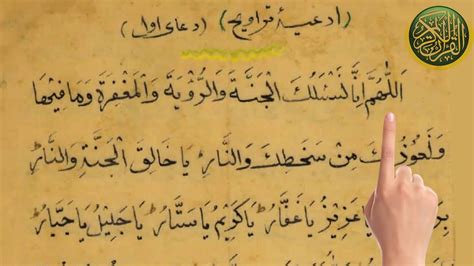 (ادعیۀ تراویح) (دعای اول)
اَللّٰهُمَّ اِنَّا نَسْئَلُكَ الْجَنَّةَ وَالرُّؤْيَةَ وَالْمَغْفِرَةَ وَمَا فِيْهَا
وَنَعُوْذُ بِكَ مِنْ سَخَطِكَ وَالنَّارِ يَا خَالِقَ الْجَنَّةِ وَالنَّارِ
يَا عَزِيْزُ يَا غَفَّارُ يَا كَرِيْمُ يَا سَتَّارُ يَا جَلِيْلُ يَا جَبَّارُ
القرآن الكريم